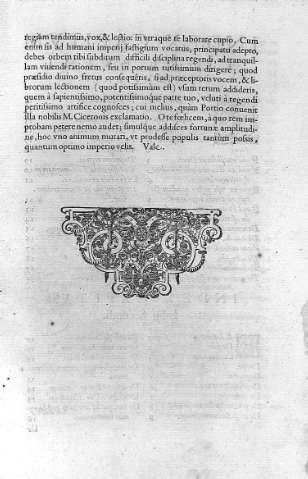 regiam tendimus, vox, & lectio: in vtraque te laborare cupio. Cum
enim sis ad humani imperij fastigium vocatus, principatu adepto,
debes orbem tibi subditum difficili disciplina regendi, ad tranquil-
lam viuendi rationem, seu in portum tutissimum dirigere; quod
præsidio diuino fretus consequêris, si ad præceptorum vocem, & li-
brorum lectionem (quod potissimum est) vsum rerum addideris,
quem à sapientissimo, potentissimoque patre tuo, veluti à regendi
peritissimo artifice cognosces; cui melius, quàm Portio conuenit
illa nobilis M. Ciceronis exclamatio. O te fœlicem, à quo rem im-
probam petere nemo audet; simulque addisces fortunæ amplitudi-
ne, hoc vno animum mutari, vt prodesse populis tantùm possis,
quantum optimo imperio velis. Vale.